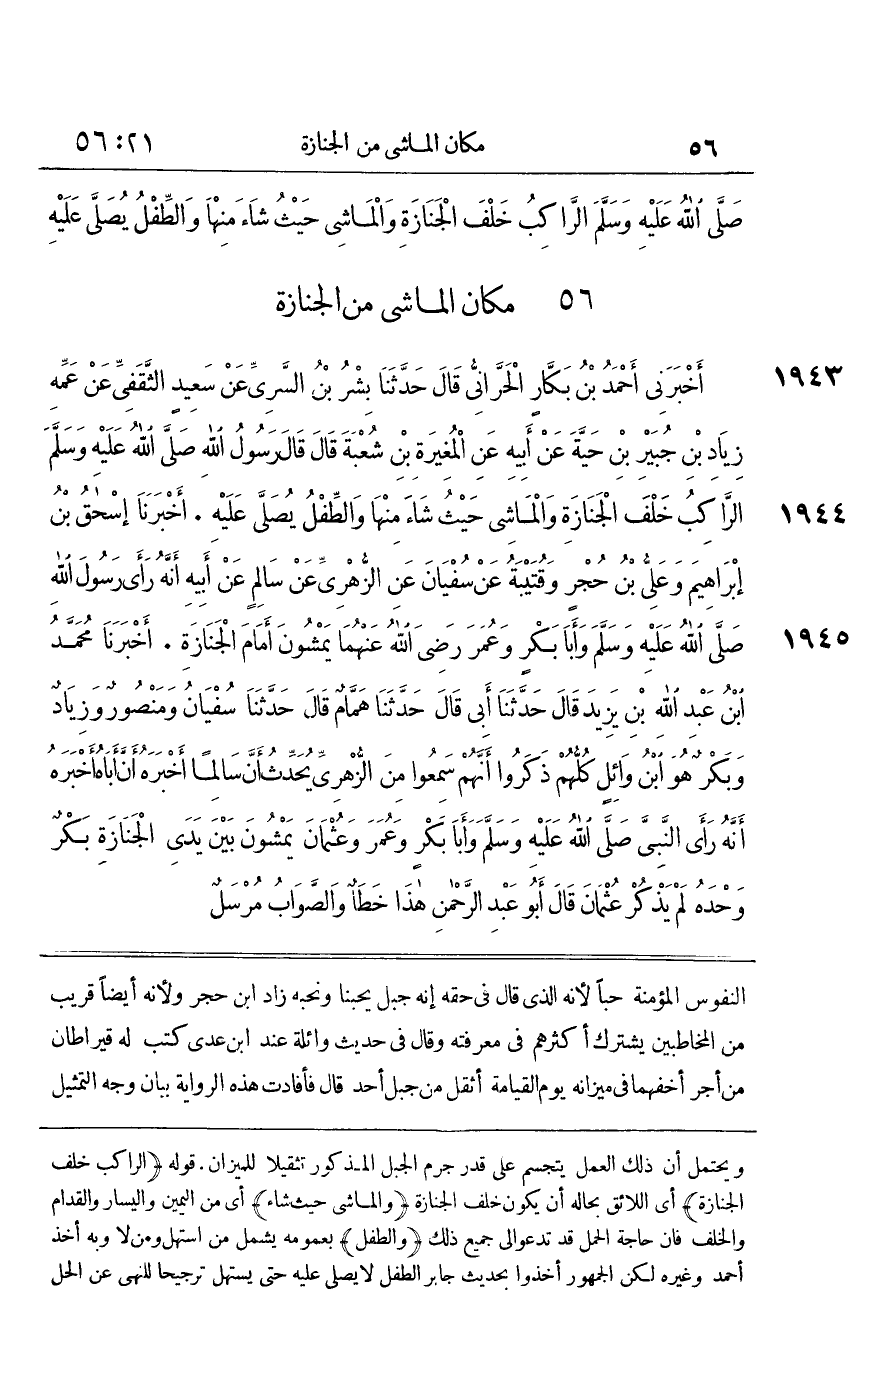 ٥٦ مكان الماشى من الجنازة ٢١: ٥٦
صَلَّى ٱللهُ عَلَيْهِ وَسَلَّمَ الرَّاكِبُ خَلْفَ الْجَنَازَةِ وَالْمَاشِى حَيْثُ شَاءَ مِنْهَا وَالطِّفْلُ يُصَلَّى عَلَيْهِ
٥٦ مكان الماشى من الجنازة
١٩٤٣ أَخْبَرَنِى أَحْمَدُ بْنُ بَكَّارٍ الْحَرَّانِىُّ قَالَ حَدَّثَنَا بِشْرُ بْنُ السَّرِىِّ عَنْ سَعِيدٍ الثَّقَفِىِّ عَنْ عَمِّهِ
زِيَادِ بْنِ جُبَيْرِ بْنِ حَيَّةَ عَنْ أَبِيهِ عَنِ الْمُغِيرَةِ بْنِ شُعْبَةَ قَالَ قَالَ رَسُولُ ٱللهِ صَلَّى ٱللهُ عَلَيْهِ وَسَلَّمَ
١٩٤٤ الرَّاكِبُ خَلْفَ الْجَنَازَةِ وَالْمَاشِى حَيْثُ شَاءَ مِنْهَا وَالطِّفْلُ يُصَلَّى عَلَيْهِ . أَخْبَرَنَا إِسْحٰقُ بْنُ
إِبْرَاهِيمَ وَعَلِىُّ بْنُ حُجْرٍ وَقُتَيْبَةُ عَنْ سُفْيَانَ عَنِ الزُّهْرِىِّ عَنْ سَالِمٍ عَنْ أَبِيهِ أَنَّهُ رَأَى رَسُولَ ٱللهِ
١٩٤٥ صَلَّى ٱللهُ عَلَيْهِ وَسَلَّمَ وَأَبَا بَكْرٍ وَعُمَرَ رَضِىَ ٱللهُ عَنْهُمَا يَمْشُونَ أَمَامَ الْجَنَازَةِ . أَخْبَرَنَا مُحَمَّدُ
ٱبْنُ عَبْدِ ٱللهِ بْنِ يَزِيدَ قَالَ حَدَّثَنَا أَبِى قَالَ حَدَّثَنَا هَمَّامٌ قَالَ حَدَّثَنَا سُفْيَانُ وَمَنْصُورٌ وَزِيَادٌ
وَبَكْرٌ هُوَ ٱبْنُ وَائِلٍ كُلُّهُمْ ذَكَرُوا أَنَّهُمْ سَمِعُوا مِنَ الزُّهْرِىِّ يُحَدِّثُ أَنَّ سَالِمًا أَخْبَرَهُ أَنَّ أَبَاهُ أَخْبَرَهُ
أَنَّهُ رَأَى النَّبِىَّ صَلَّى ٱللهُ عَلَيْهِ وَسَلَّمَ وَأَبَا بَكْرٍ وَعُمَرَ وَعُثْمَانَ يَمْشُونَ بَيْنَ يَدَىِ الْجَنَازَةِ بَكْرٌ
وَحْدَهُ لَمْ يَذْكُرْ عُثْمَانَ قَالَ أَبُو عَبْدِ الرَّحْمٰنِ هٰذَا خَطَأٌ وَالصَّوَابُ مُرْسَلٌ
النفوس المؤمنة حباً لأنه الذى قال فى حقه إنه جبل يحبنا ونحبه زاد ابن حجر ولأنه أيضاً قريب
من المخاطبين يشترك أكثرهم فى معرفته وقال فى حديث واثلة عند ابن عدى كتب له قيراطان
من أجر أخفهما فى ميزانه يوم القيامة أثقل من جبل أحد قال فأفادت هذه الرواية بيان وجه التمثيل
ويحتمل أن ذلك العمل يتجسم على قدر جرم الجبل المذكور تثقيلا للميزان . قوله ﴿الراكب خلف
الجنازة﴾ أى اللائق بحاله أن يكون خلف الجنازة ﴿والماشى حيث شاء﴾ أى من اليمين واليسار والقدام
والخلف فان حاجة الحمل قد تدعو الى جميع ذلك ﴿والطفل﴾ بعمومه يشمل من استهل ومن لا وبه أخذ
أحمد وغيره لكن الجمهور أخذوا بحديث جابر الطفل لا يصلى عليه حتى يستهل ترجيحا للنهى عن الحل